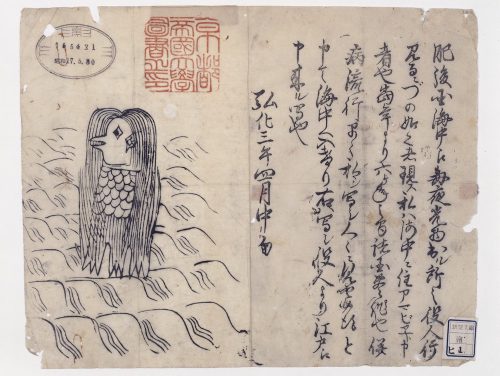 肥後国海中え毎夜光物出ル所之役人行
見るニづの如く之者現ス私ハ海中ニ住アマビヱト申
者也当年より六ヶ年之間諸国豊作也併
病流行早々私ヲ写シ人々ニ見セ候得と
申て海中へ入けり右写シ役人より江戸え
申来ル写也
弘化三年四月中旬
京都
帝國大學
圖書之印
165421